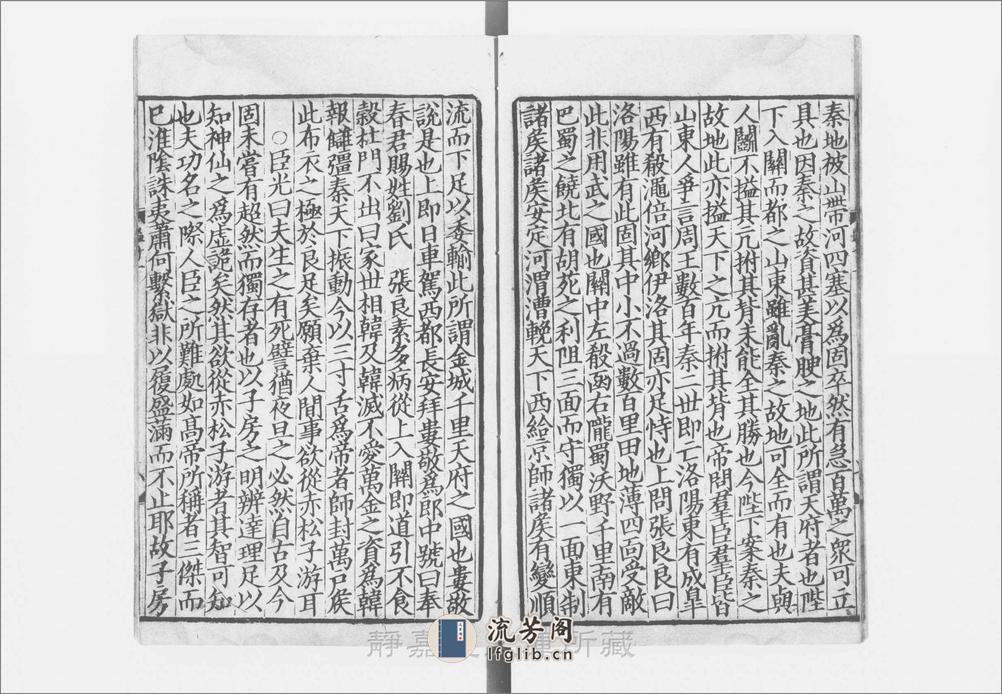 秦地被山帶河四塞以爲固卒然有急百萬之衆可立
具也因秦之故資甚美膏腴之地此所謂天府者也陛
下入關而都之山東雖亂秦之故地可全而有也夫與
人鬬不搤其亢拊其背未能全其勝也今陛下案秦之
故地此亦搤天下之亢而拊其背也帝問羣臣羣臣皆
山東人爭言周王數百年秦二世即亡洛陽東有成皐
西有殽澠倍河鄉伊洛其固亦足恃也上問張良良曰
洛陽雖有此固其中小不過數百里田地薄四面受敵
此非用武之國也關中左殽函右隴蜀沃野千里南有
巴蜀之饒北有胡苑之利阻三面而守獨以一面東制
諸矦諸矦安定河渭漕輓天下西給京師諸矦有變順
流而下足以委輸此所謂金城千里天府之國也婁敬
說是也上即日車駕西都長安拜婁敬爲郎中號曰奉
春君賜姓劉氏　張良素多病從上入關即道引不食
穀杜門不出曰家世相韓及韓滅不愛萬金之資爲韓
報讎彊秦天下振動今以三寸舌爲帝者師封萬戶矦
此布衣之極於良足矣願棄人間事欲從赤松子游耳
○臣光曰夫生之有死譬猶夜旦之必然自古及今
固未嘗有超然而獨存者也以子房之明辨達理足以
知神仙之爲虛詭矣然其欲從赤松子游者其智可知
也夫功名之際人臣之所難處如高帝所稱者三傑而
已淮陰誅夷蕭何繫獄非以履盛滿而不止耶故子房
静嘉
所藏
流芳阁
lfglib.cn